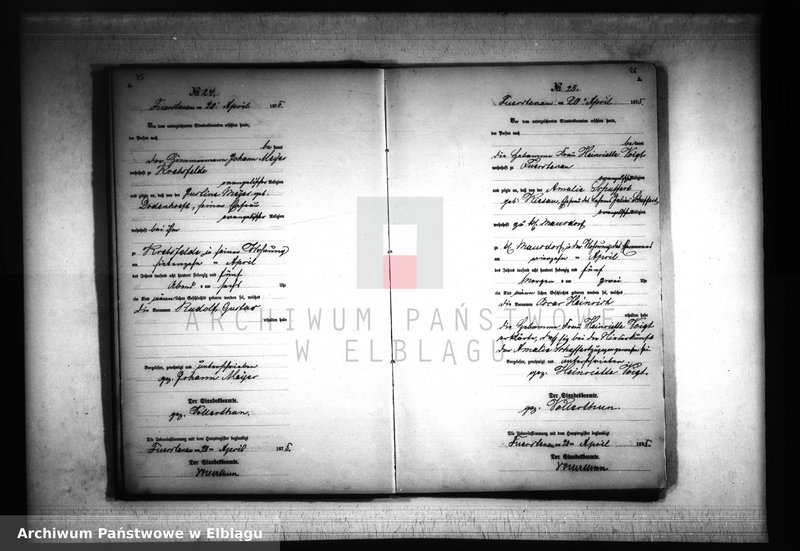 25
A.
№ 24.
Fuerstenau am 20. April 1875.
Vor dem unterzeichneten Standesbeamten erschien heute,
der Person nach
bekannt
der Zimmermann Johann Meijer
wohnhaft zu Krebsfelde
evangelischer Religion
und zeigte an, daß von der Justine Meijer geb.
seiner Ehefrau
evangelischer Religion
wohnhaft bei ihm
zu Krebsfelde in seiner Wohnung
am siebenzehn ten April
des Jahres tausend acht hundert siebenzig und fünf
Abend s um sechs Uhr
ein Kind männlichen Geschlechts geboren worden sei, welches
die Vornamen Rudolf Gustav
erhalten habe
Vorgelesen, genehmigt und unterschrieben
gez. Johann Meijer
Der Standesbeamte.
gez. Vollerthun.
Die Uebereinstimmung mit dem Hauptregister beglaubigt
Fuerstenau am 20ten April 1875.
Der Standesbeamte.
Vollerthun
A.
№ 25.
Fuerstenau am 20. April 1875.
Vor dem unterzeichneten Standesbeamten erschien heute,
der Person nach
bekannt
die Hebamme Frau Heinriette Voigt
wohnhaft zu Fuerstenau
evangelischer Religion
und zeigte an, daß von der Amalie Schaffert
geb. Ehefrau des Julius Schaffert
evangelischer Religion
wohnhaft zu kl. Mausdorf
zu kl. Mausdorf in der Wohnung des
am ten April
des Jahres tausend acht hundert siebenzig und fünf
Morgen s um zwei Uhr
ein Kind männlichen Geschlechts geboren worden sei, welches
die Vornamen Oscar Heinrich
erhalten habe
die Hebamme Frau Heinriette Voigt
erklärte, daß sie bei der Niederkunft
der Amalie Schaffert zugegen gewesen sei.
Vorgelesen, genehmigt und unterschrieben
gez. Heinriette Voigt.
Der Standesbeamte.
gez. Vollerthun.
Die Uebereinstimmung mit dem Hauptregister beglaubigt
Fuerstenau am 20ten April 1875.
Der Standesbeamte.
Vollerthun
ARCHIWUM PAŃSTWOWE
W ELBLĄGU
Archiwum Państwowe w Elblągu